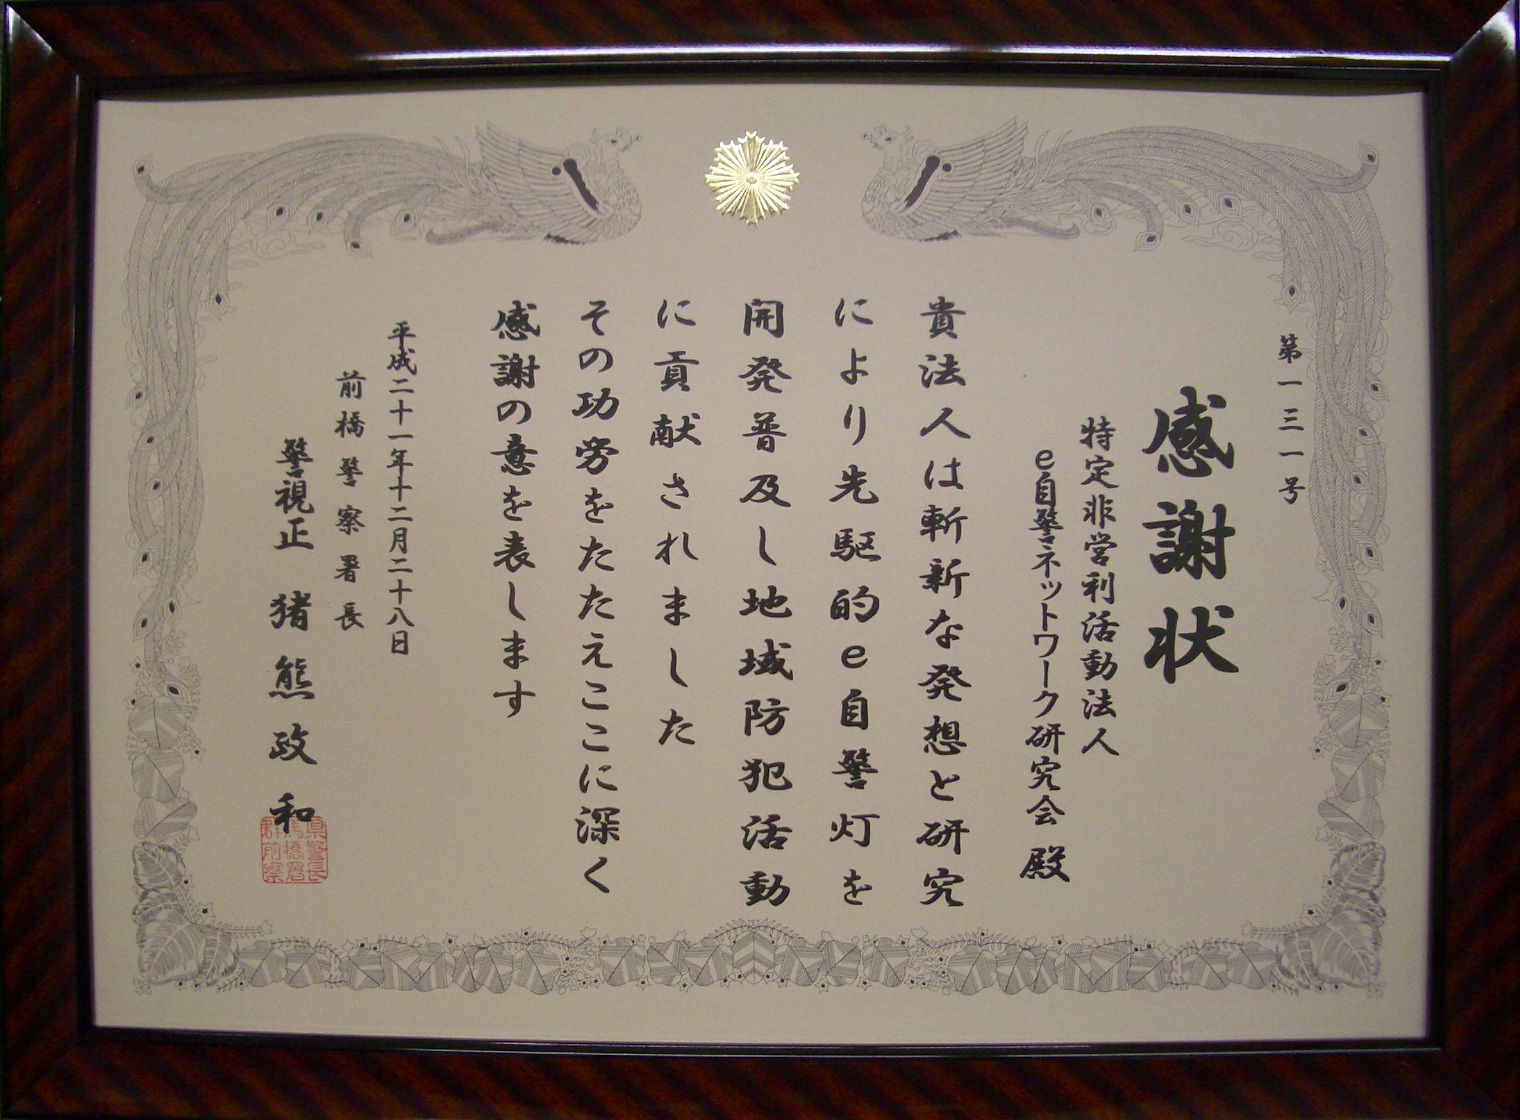 第一三一号
感謝状
特定非営利活動法人
e自警ネットワーク研究会 殿
貴法人は斬新な発想と研究
により先駆的e自警灯を
開発普及し地域防犯活動
に貢献されました
その功労をたたえここに深く
感謝の意を表します
平成二十一年十二月二十八日
前橋警察署長
警視正 猪熊政和